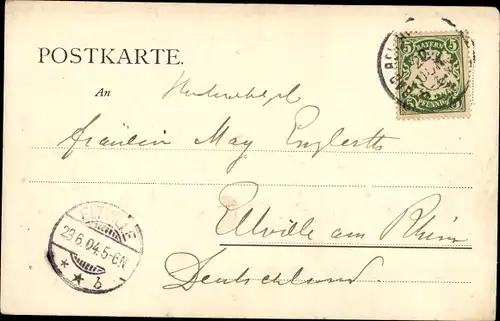 POSTKARTE.
5 BAYERN 5
PFENNIG
An
Fräulein May Englerth
Eltville am Rhein
Deutschland.
ELTVILLE
23.6.04.5-6N
* * b